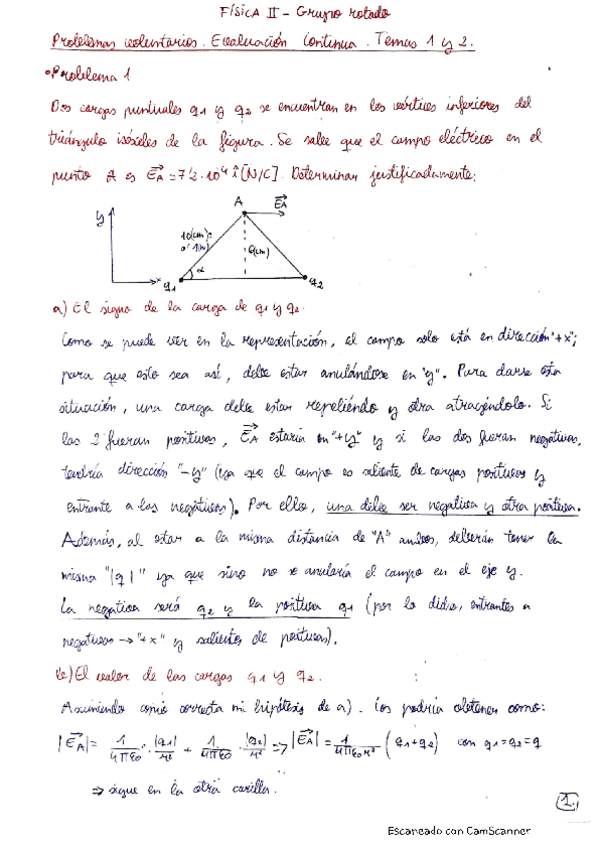 FÍSICA II - Grupo rotado
Problemas voluntarios. Evaluación Continua. Temas 1 y 2.
Problema 1
Dos cargas puntuales q1 y q2 se encuentran en los vértices inferiores del
triángulo isósceles de la figura. Se sabe que el campo eléctrico en el
punto A es EA = 7'2·10⁴ î [N/C]. Determinar justificadamente:
A
EA
y
10(cm)=
0'1(m)
6(cm)
α
x
q1
q2
a) El signo de la carga de q1 y q2.
Como se puede ver en la representación, el campo solo está en dirección "+x";
para que esto sea así, debe estar anulándose en "y". Para darse esta
situación, una carga debe estar repeliéndo y otra atrayéndolo. Si
las 2 fueran positivas, EA estaría en "+y" y si las dos fueran negativas,
tendría dirección "-y" (ya que el campo es saliente de cargas positivas y
entrante a las negativas). Por ello, una debe ser negativa y otra positiva.
Además, al estar a la misma distancia de "A" ambas, deberán tener la
misma "|q|" ya que sino no se anularía el campo en el eje y.
La negativa será q2 y la positiva q1 (por lo dicho, entrantes a
negativas → "+x" y salientes de positivas).
b) El valor de las cargas q1 y q2.
Asumiendo como correcta mi hipótesis de a). Los podría obtener como:
|EA| = 1/4πε0 · |q1|/r² + 1/4πε0 · |q2|/r² => |EA| = 1/4πε0r² (q1+q2) con q1=q2=q
⇒ sigue en la otra carilla.
1.
Escaneado con CamScanner